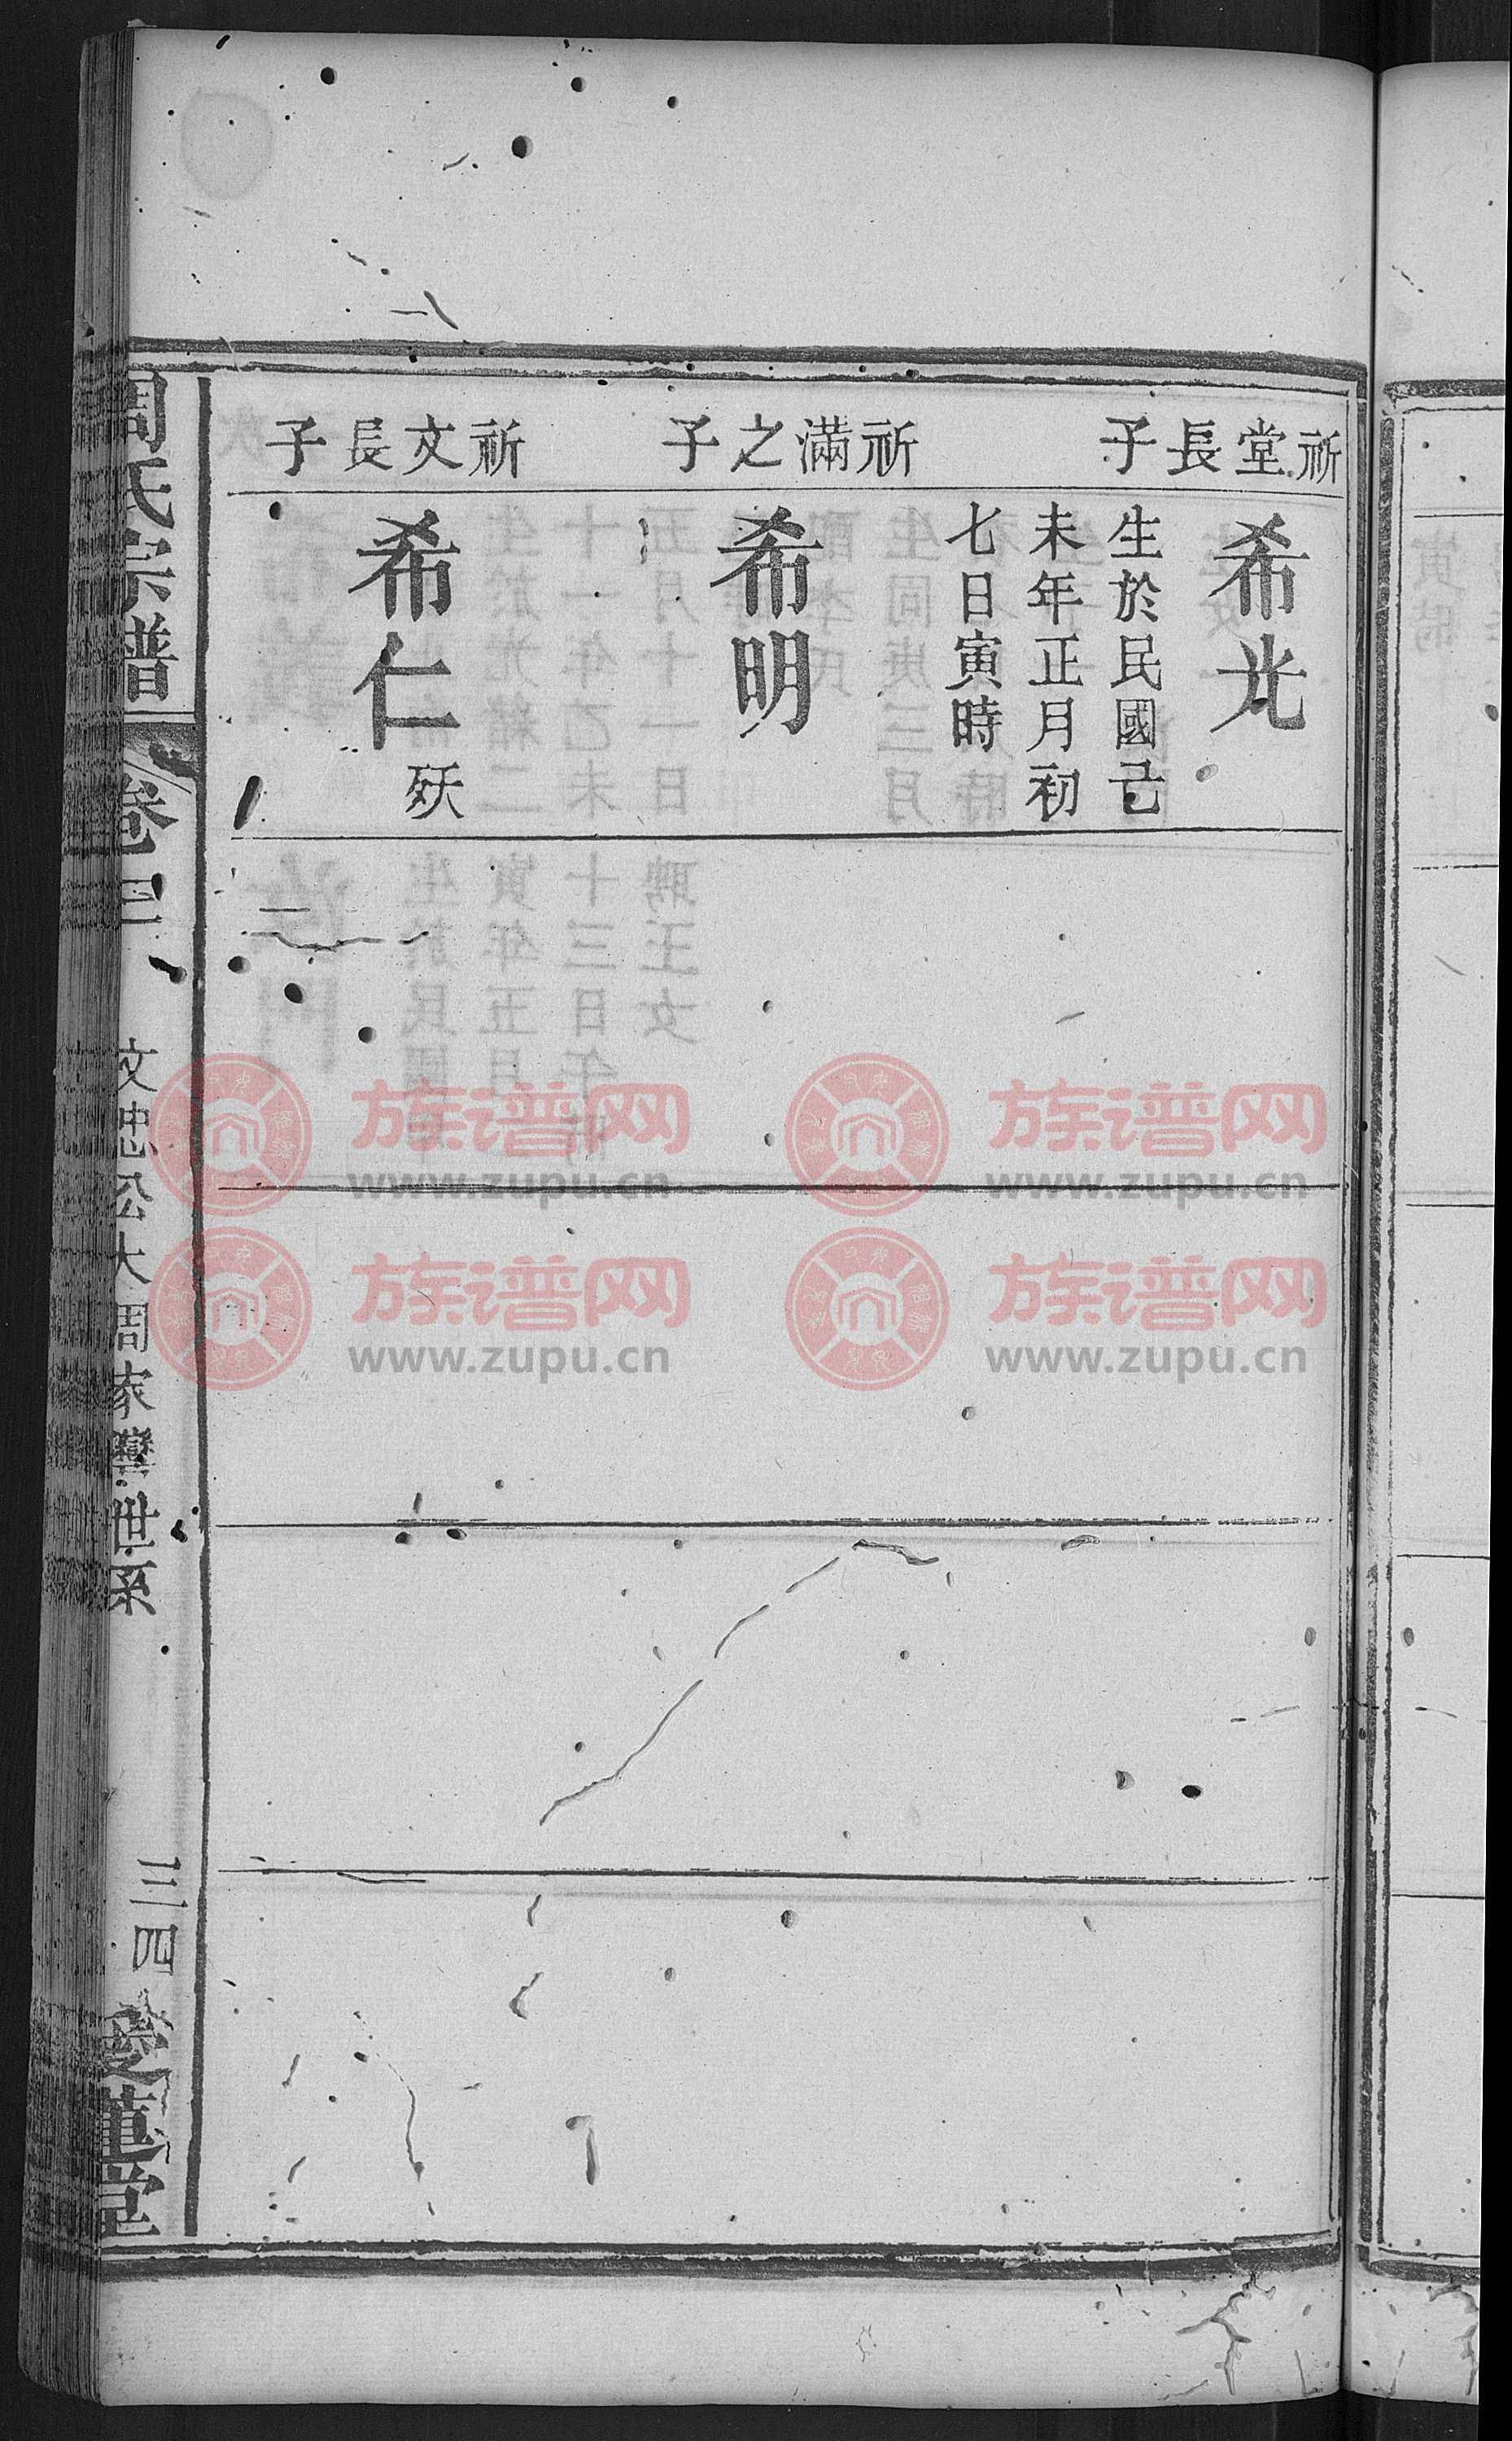 祈堂長子
希光
生於民國己
未年正月初
七日寅時
祈滿之子
希明
祈文長子
希仁
殀
周氏宗譜
卷三
文忠公大周家灣世系
三四
愛蓮堂
族谱网
www.zupu.cn
族谱网
www.zupu.cn
族谱网
www.zupu.cn
族谱网
www.zupu.cn